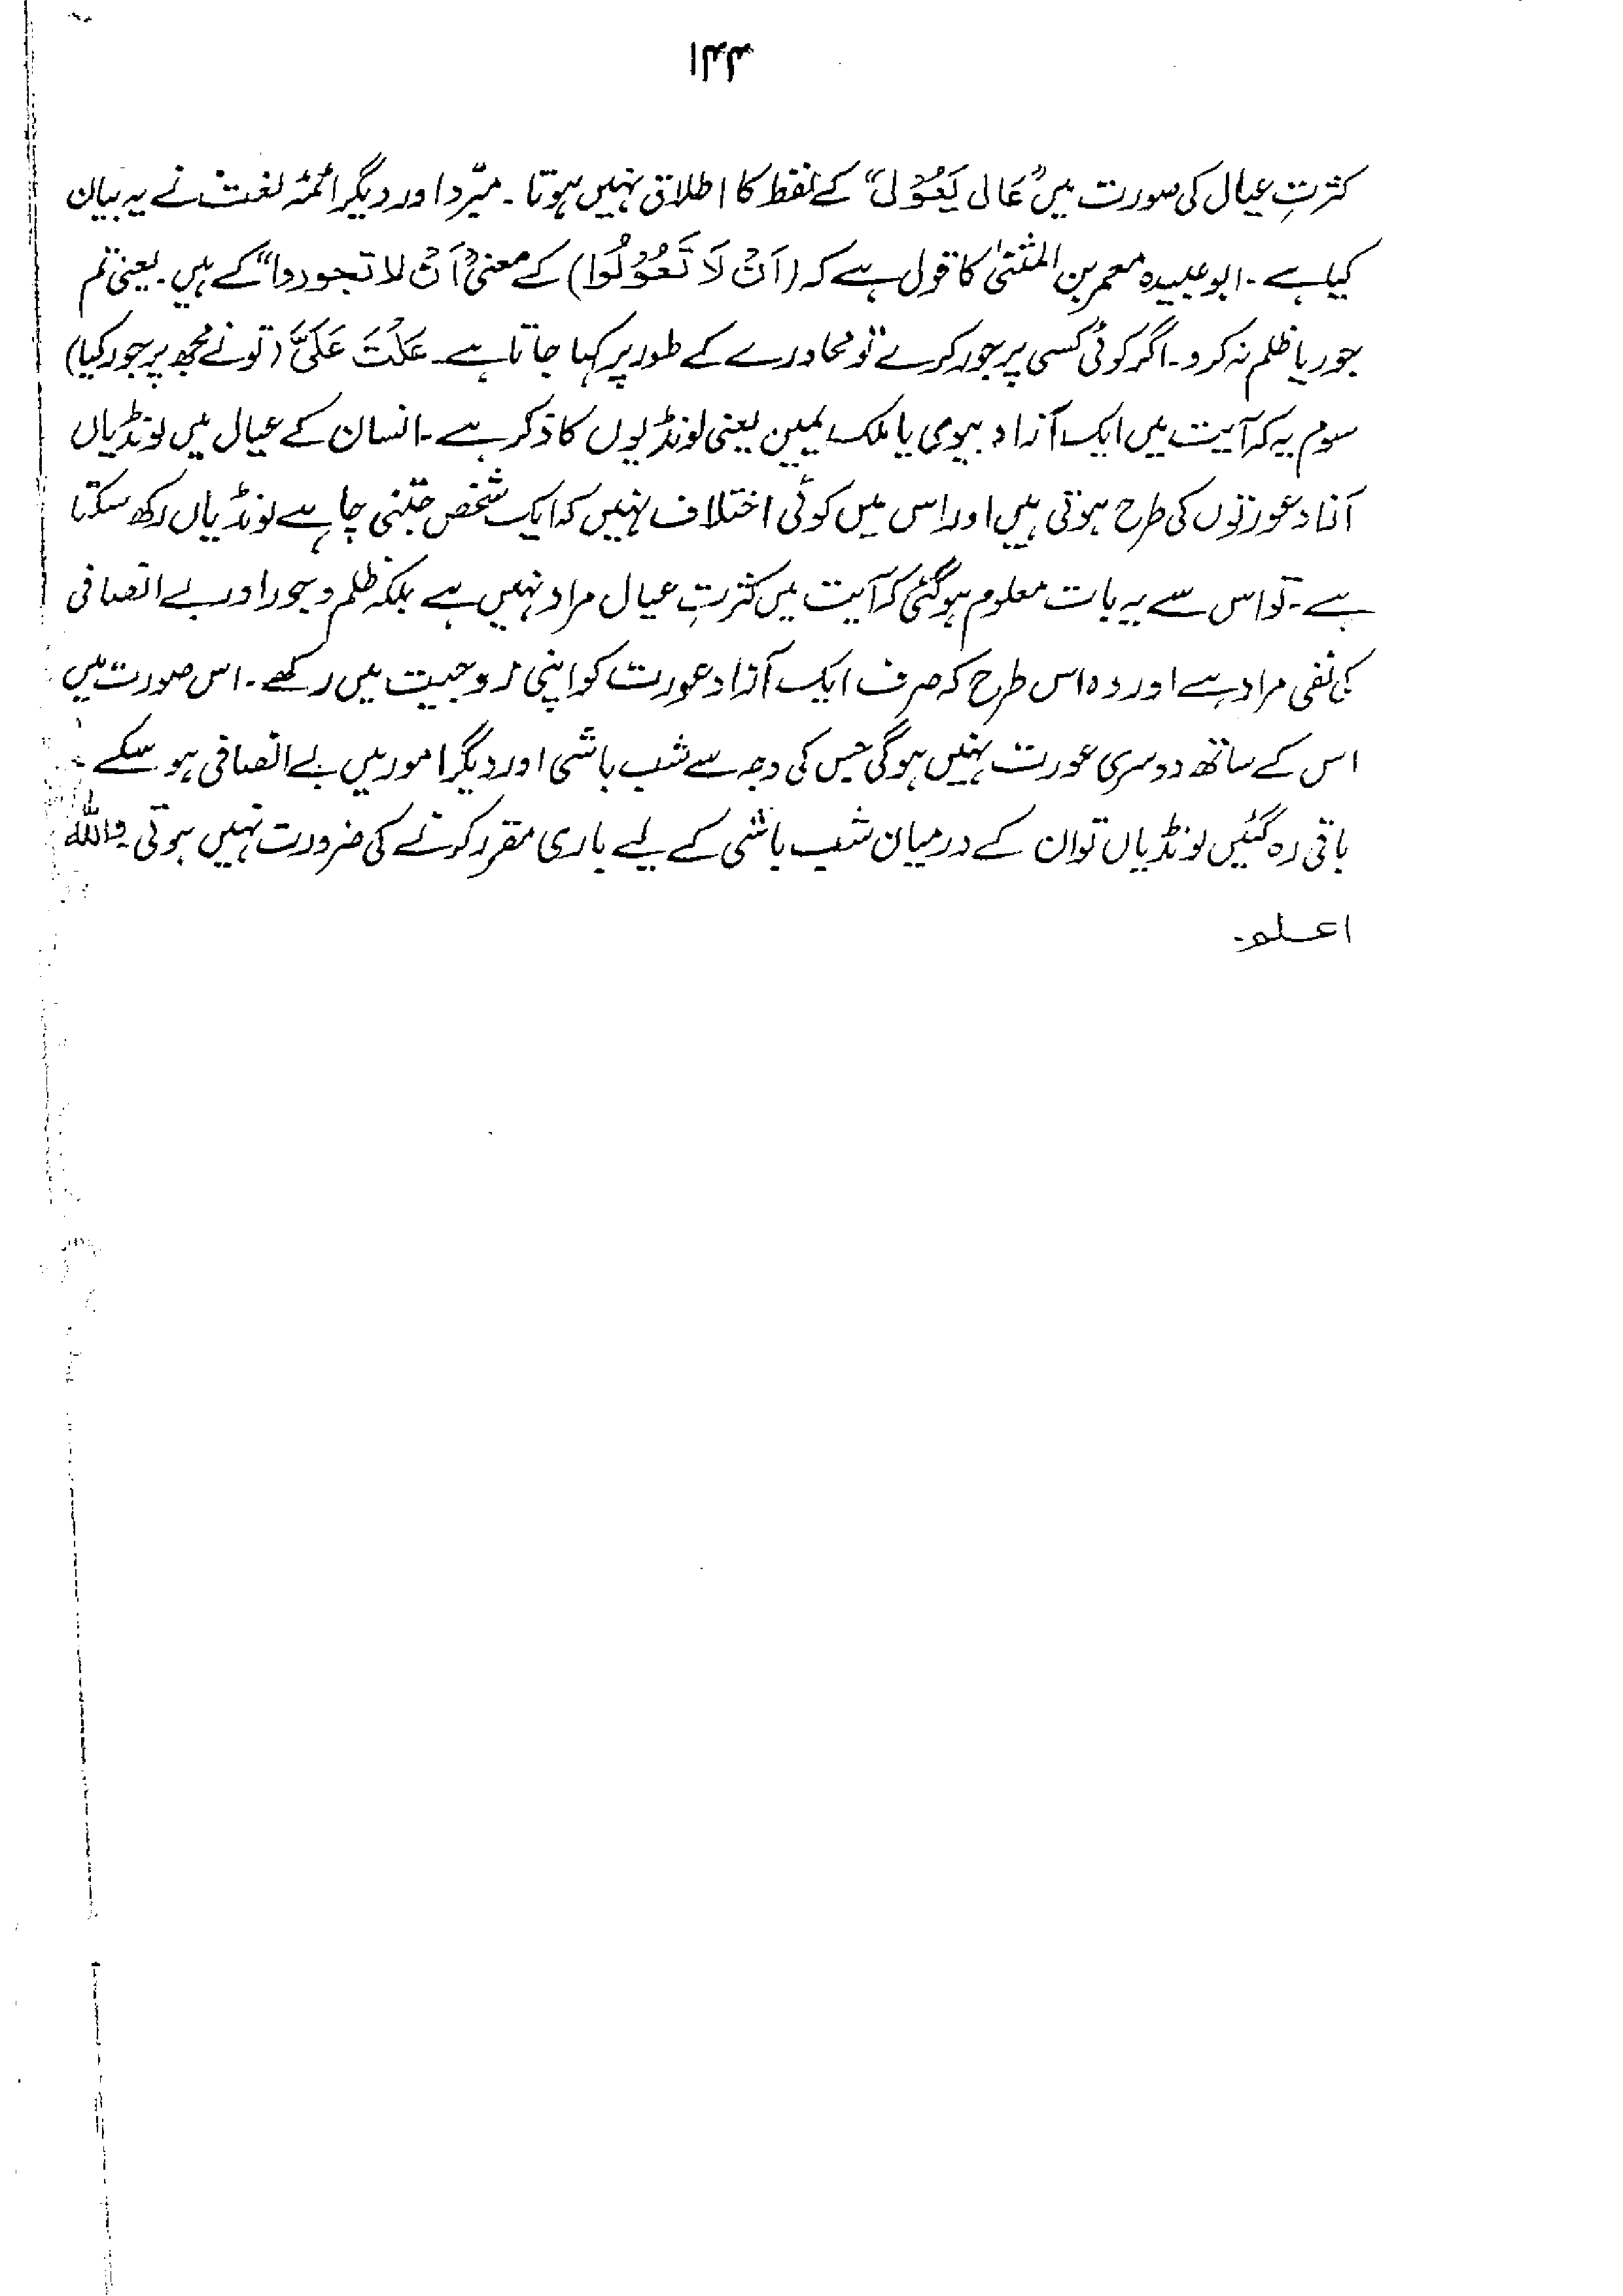 ۱۴۴
کثرتِ عیال کی صورت میں "عَالَ یَعُوْلُ" کے لفظ کا اطلاق نہیں ہوتا۔ مبرّد اور دیگر ائمّۂ لغت نے یہ بیان
کیا ہے۔ ابو عبیدہ معمر بن المثنیٰ کا قول ہے کہ (اَنْ لَا تَعُوْلُوْا) کے معنی "اَنْ لا تجوروا" کے ہیں۔ یعنی تم
جور یا ظلم نہ کرو۔ اگر کوئی کسی پر جور کرے تو محاورے کے طور پر کہا جاتا ہے۔ عَلْتَ عَلَیَّ (تو نے مجھ پر جور کیا)
سوم یہ کہ آیت میں ایک آزاد بیوی یا ملک یمین یعنی لونڈیوں کا ذکر ہے۔ انسان کے عیال میں لونڈیاں
آزاد عورتوں کی طرح ہوتی ہیں اور اس میں کوئی اختلاف نہیں کہ ایک شخص جتنی چاہے لونڈیاں رکھ سکتا
ہے۔ تو اس سے یہ بات معلوم ہوگئی کہ آیت میں کثرتِ عیال مراد نہیں ہے بلکہ ظلم و جور اور بے انصافی
کی نفی مراد ہے اور وہ اس طرح کہ صرف ایک آزاد عورت کو اپنی زوجیت میں رکھے۔ اس صورت میں
اس کے ساتھ دوسری عورت نہیں ہوگی جس کی وجہ سے شب باشی اور دیگر امور میں بے انصافی ہو سکے۔
باقی رہ گئیں لونڈیاں تو ان کے درمیان شب باشی کے لیے باری مقرر کرنے کی ضرورت نہیں ہوتی۔ واللہ
اعلم۔